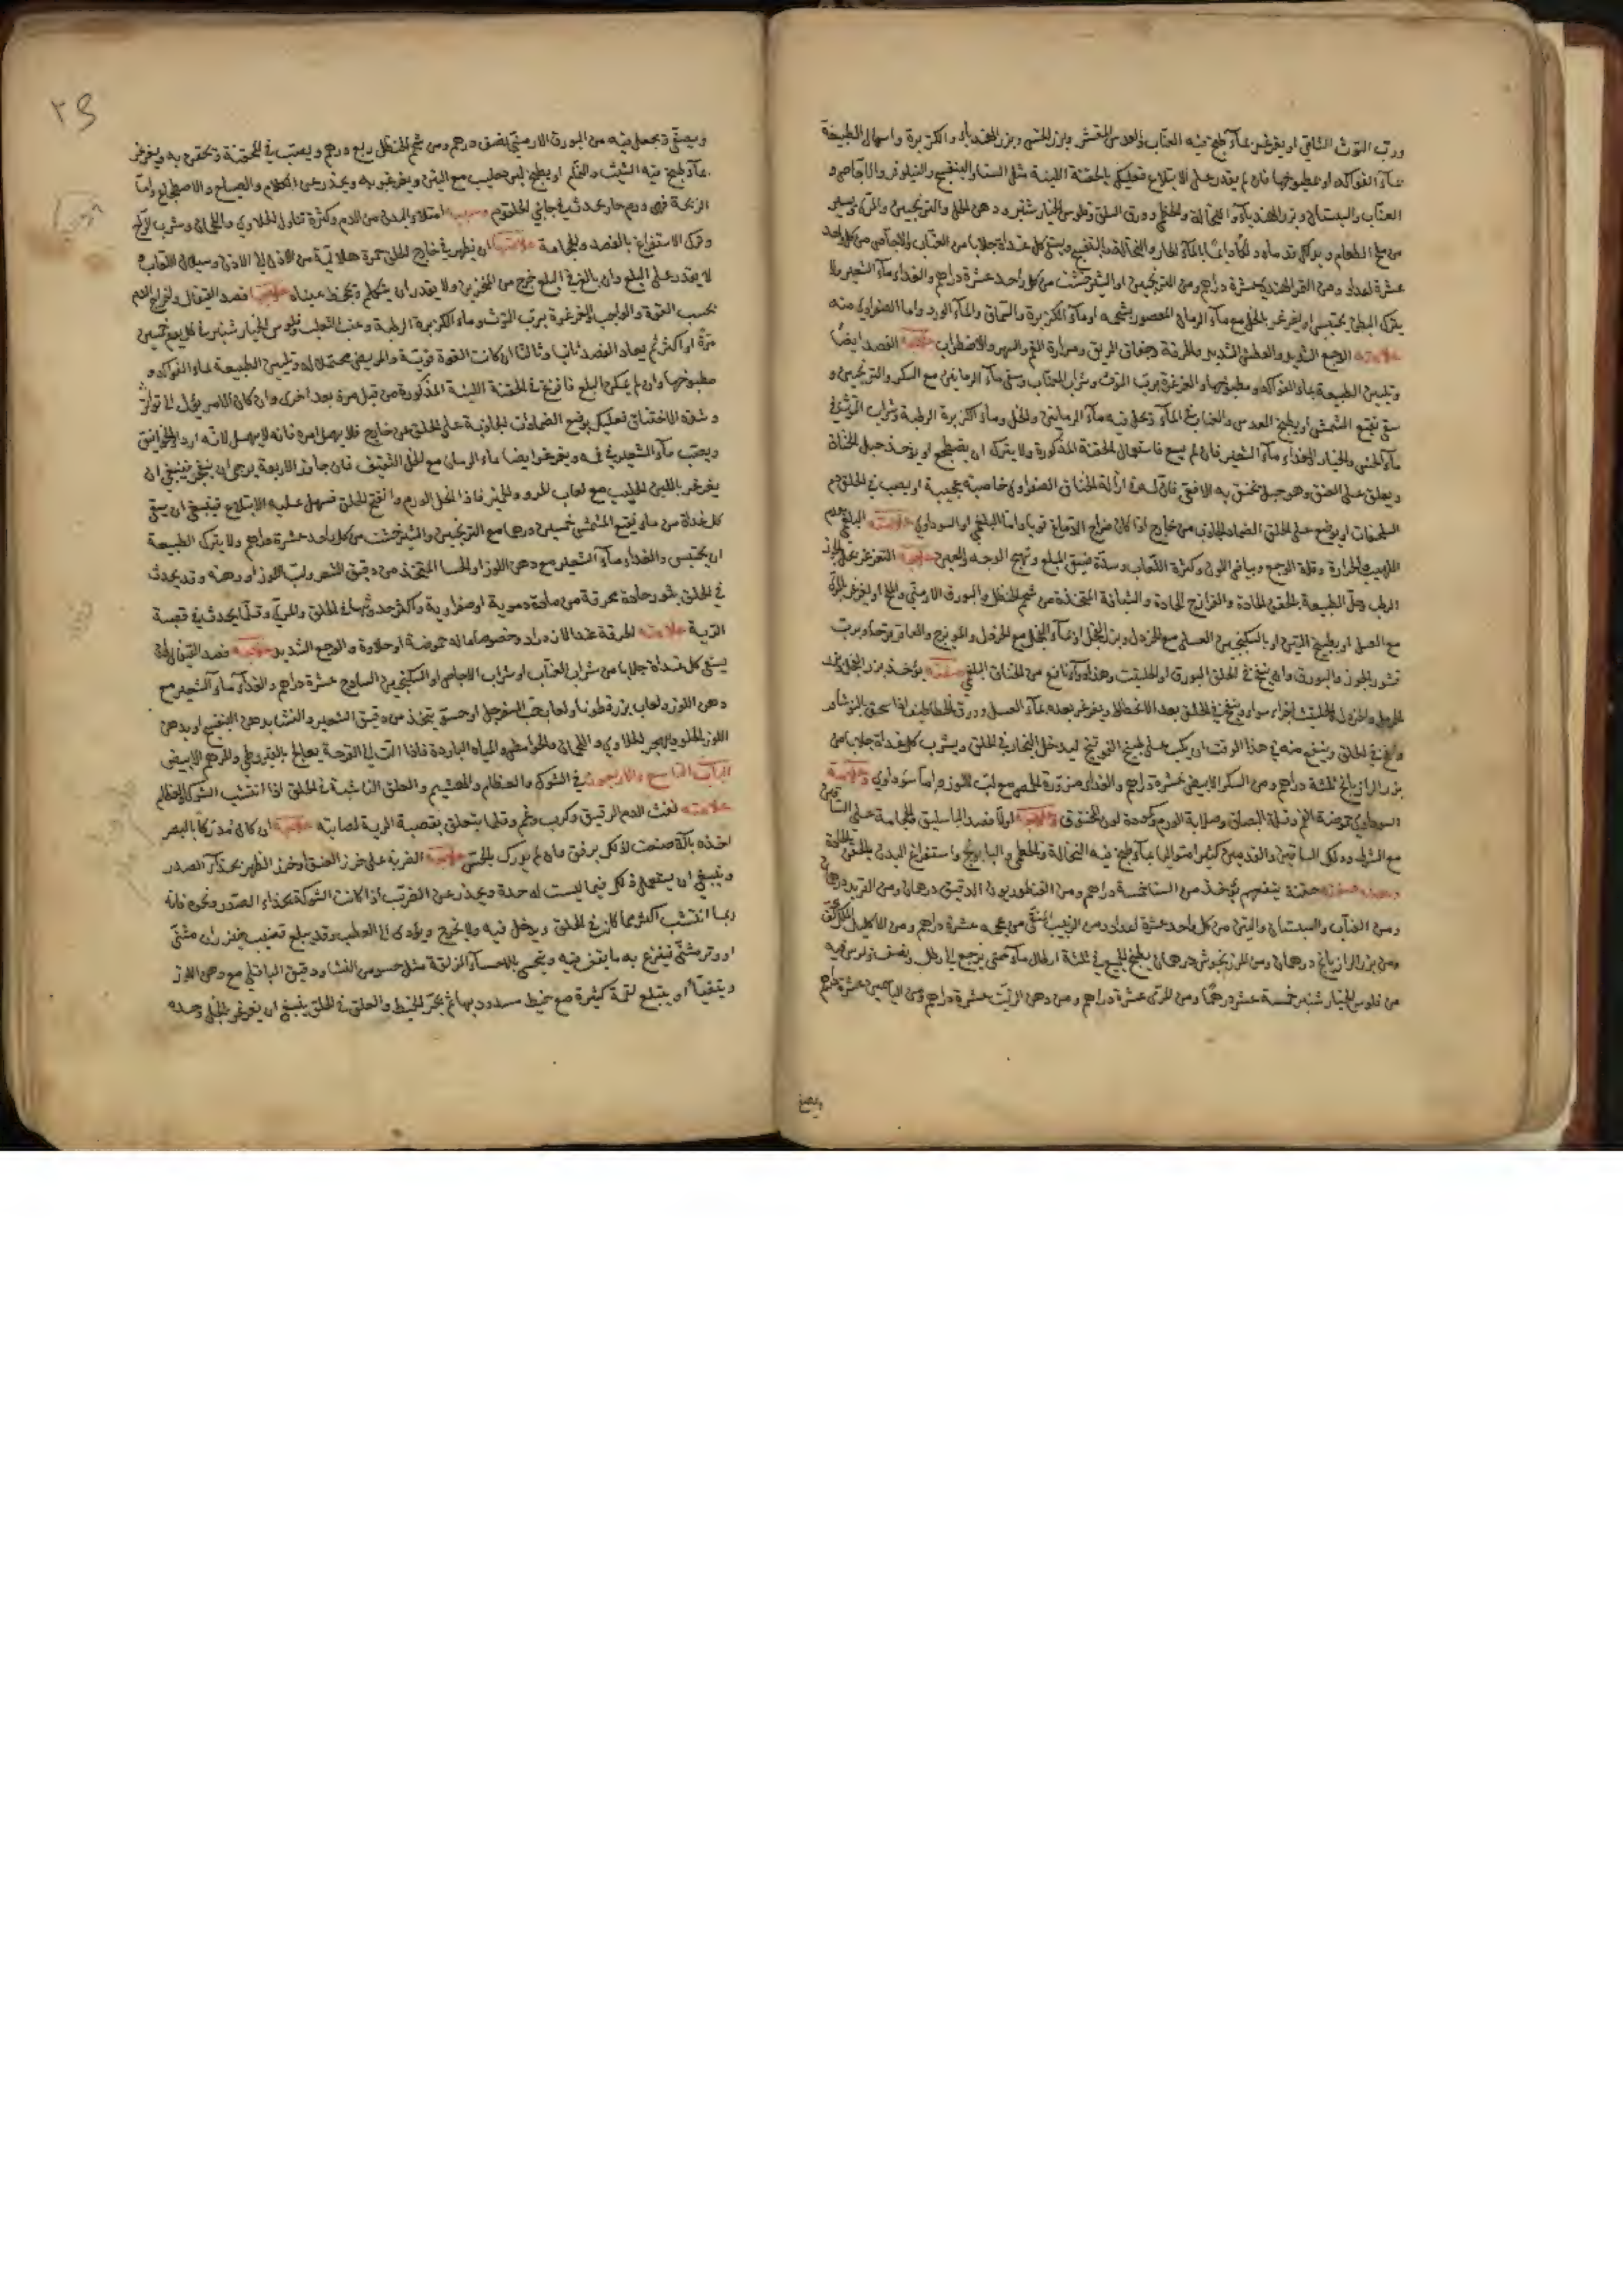 ورب التوث الشامي او يغرغر بماء طبخ فيه العناب والعدس المقشر وبزر الخس وبزر الهندباء والكزبرة واسهال الطبيعة
بماء الفواكه او مطبوخها فان لم يقدر على الابتلاع فعليك بالحقنة اللينة مثل السنا والبنفسج والنيلوفر والاجاص و
العناب والسبستان وبزر الهندباء والنخالة والخطمي وورق السلق وفلوس الخيار شنبر ودهن الحل والترنجبين والمري ويسير
من ملح الطعام ويدلك قدماه دلكا دائما بالماء الحار والنخالة والبنفسج ويسقى كل غداة جلابا من العناب والاجاص من كل واحد
عشرة اعداد ومن التمر الهندي عشرة دراهم ومن الترنجبين او الشيرخشت من كل واحد عشرة دراهم والغذاء ماء الشعير ولا
يترك البطن يحتبس او يغرغر بالخل مع ماء الرمان المعصور بشحمه او ماء الكزبرة والسماق والماء الورد واما الصفراوي منه
علامته الوجع الشديد والعطش الشديد والحرقة وجفاف الريق ومرارة الفم والسهر والاضطراب علاجه الفصد ايضا
وتليين الطبيعة بماء الفواكه ومطبوخها والغرغرة برب التوث وشراب العناب وسقي ماء الرمانين مع السكر والترنجبين و
سقي نقيع المشمش او يطبخ العدس والعناب في الماء وتحل فيه ماء الرمانين والخل وماء الكزبرة الرطبة وشراب التوث في
ماء الخس والخيار والغذاء ماء الشعير فان لم يسع فاستعمال الحقنة المذكورة ولا يترك ان يضطجع او يؤخذ حبل الخناق
ويعلق على العنق وهو حبل يخنق به الافعى فان له في ازالة الخناق الصفراوي خاصية عجيبة او يصب في الحلق دم
او يوضع على الحلق الضماد الجاذب من خارج اذا كان مزاج الدماغ قويا واما البلغمي او السوداوي علامته البلغمي عدم
اللهيب والحرارة وقلة الوجع وبياض اللون وكثرة اللعاب وشدة ضيق المبلع وتهيج الوجه والعين علاجه التغرغر بخل الجوز
الرطب وحل الطبيعة بالحقن الحادة والفرازج الحادة والشيافة المتخذة من شحم الحنظل والبورق الارمني والملح او يغرغر بالمري
مع العسل او بطبيخ التين او بالسكنجبين العسلي مع الخردل وبزر الفجل او بماء الفجل مع الخردل والمويزج والعاقرقرحا وبرب
قشور الجوز والبورق وان ينفخ في الحلق البورق او الحلتيت وهذا دواء نافع من الخناق البلغمي صفته يؤخذ بزر الفجل
الحرمل والخردل والحلتيت اجزاء سواء وينفخ في الحلق بعد الانحطاط ويغرغر بعده بماء العسل وورق الخطاطيف اذا سحق بالنوشادر
ونفخ في الحلق وينفع منه في هذا الوقت ان يكب على طبيخ الفوتنج ليدخل البخار في الحلق ويشرب كل غداة جلابا من
بزر الرازيانج ثلثة دراهم ومن السكر الابيض عشرة دراهم والغذاء مزورة الحمص مع لب اللوز واما سوداوي وعلامته
السوداوي حموضة الفم وقلة البصاق وصلابة الورم وكمودة لون المخنوق وعلاجه اولا فصد الباسليق والحجامة على الساقين
مع الشرط ودلك الساقين والقدمين كثيرا متواليا بماء طبخ فيه النخالة والخطمي والبابونج واستفراغ البدن بالحقن الحادة
وهذه صفة حقنة ينفعهم يؤخذ من السنا خمسة دراهم ومن القنطوريون الدقيق درهمان ومن التربد درهمان
ومن العناب والسبستان والتين من كل واحد عشرة اعداد ومن الزبيب المنقى من عجمه عشرة دراهم ومن الاكليل الملك
ومن بزر الرازيانج درهمان ومن المرزنجوش درهمان يطبخ الجميع في ثلثة ارطال ماء حتى يرجع الى رطل ونصف ويمرس فيه
من فلوس الخيار شنبر خمسة عشر درهما ومن المري عشرة دراهم ومن دهن الزيت عشرة دراهم ومن الياسمين عشرة دراهم
ويصفى
٢٥
ويصفى ويجعل فيه من البورق الارمني نصف درهم ومن شحم الحنظل ربع درهم ويصب في المحقنة وتحقن به ويغرغر
بماء طبخ فيه الشبث والفجل او يطبخ لبن حليب مع التين ويغرغر به ويحذر عن الكلام والصياح والاضطجاع واما
الذبحة فهي ورم حار يحدث في جانبي الحلقوم وسببه امتلاء البدن من الدم وكثرة تناول الحلاوي واللحمان وشرب الراح
وترك الاستفراغ بالفصد والحجامة علامتها ان يظهر في خارج الحلق حمرة هلالية من الاذن الى الاذن وسيلان اللعاب
لا يقدر على البلع وان بالغ في البلع خرج من المنخرين ولا يقدر ان يتكلم وتجحظ عيناه علاجها فصد القيفال واخراج الدم
بحسب القوة والواجب والغرغرة برب التوث وماء الكزبرة الرطبة وعنب الثعلب وفلوس الخيار شنبر في كل يوم خمسين
مرة او اكثر ثم يعاد الفصد ثانيا وثالثا ان كانت القوة قوية والمريض محتملا له وتليين الطبيعة بماء الفواكه و
مطبوخها وان لم يمكن البلع فافزع الى الحقنة اللينة المذكورة من قبل مرة بعد اخرى وان كان الامر يؤل الى تواتر
وشدة الاختناق فعليك بوضع الضمادات الجاذبة على الحلق من خارج فلا يهمل امره فانه لا يمهل لانه اردا الخوانيق
ويصب ماء الشعير في فمه ويغرغر ايضا بماء الرمان مع الخل الثقيف فان جاوز الاربعة يرجى ان ينفجر فينبغي ان
يغرغر باللبن الحليب مع لعاب المرو والخير فاذا انحل الورم وانفتح الحلق وسهل عليه الابتلاع فينبغي ان يسقى
كل غداة من ماء نقيع المشمش خمسين درهما مع الترنجبين والشيرخشت من كل واحد عشرة دراهم ولا يترك الطبيعة
ان يحتبس والغذاء ماء الشعير مع دهن اللوز او الحسا المتخذ من دقيق الشعير ولب اللوز او دهنه وقد يحدث
في الحلق بثور حادة محرقة من مادة دموية او صفراوية واكثر حدوثها في الحلق والمري وقلما يحدث في قصبة
الرية علامته الحرقة عند الازدراد وخصوصا ما له حموضة او حلاوة والوجع الشديد علاجه فصد القيفال وان
يسقى كل غداة جلابا من شراب العناب او شراب الاجاص او السكنجبين الساذج عشرة دراهم والغذاء ماء الشعير مع
دهن اللوز ولعاب بزر قطونا ولعاب حب السفرجل او حسو يتخذ من دقيق الشعير والنشا بدهن البنفسج او بدهن
اللوز الحلو ويهجر الحلاوي واللحمان والحوامض والمياه الباردة فاذا آلت الى القرحة يعالج بالقيروطي والمرهم الابيض
الباب التاسع والاربعون في الشوك والعظام والهشيم والعلق الناشبة في الحلق اذا انتشب الشوك والعظام
علامته نفث الدم الرقيق وكرب وغم وقلما يتعلق بقصبة الرية لصلابته علاجه ان كان مدركا بالبصر
اخذه بآلة صنعت لذلك برفق وان لم يدرك بالحس علاجه الضربة على خرز العنق او خرز الظهر بحذاء الصدر
وينبغي ان يستعمل ذلك فيما ليست له حدة ويحذر عن الضرب اذا كانت الشوكة بحذاء الصدر ونحوه فانه
ربما انتشب اكثر مما كان في الحلق ويدخل فيه ولا يخرج ويؤدي الى العطب وقد يبلع قضيب خيزران مثنى
او وتر مثنى فيفزع به ما يقف فيه ويتحسى بالاحساء المزلقة مثل حسو من النشا ودقيق الباقلي مع دهن اللوز
ويتقيأ او يبتلع لقمة كبيرة مع خيط مسدود بها ثم يجر الخيط والعلق في الحلق ينبغي ان يغرغر بالخل وحده